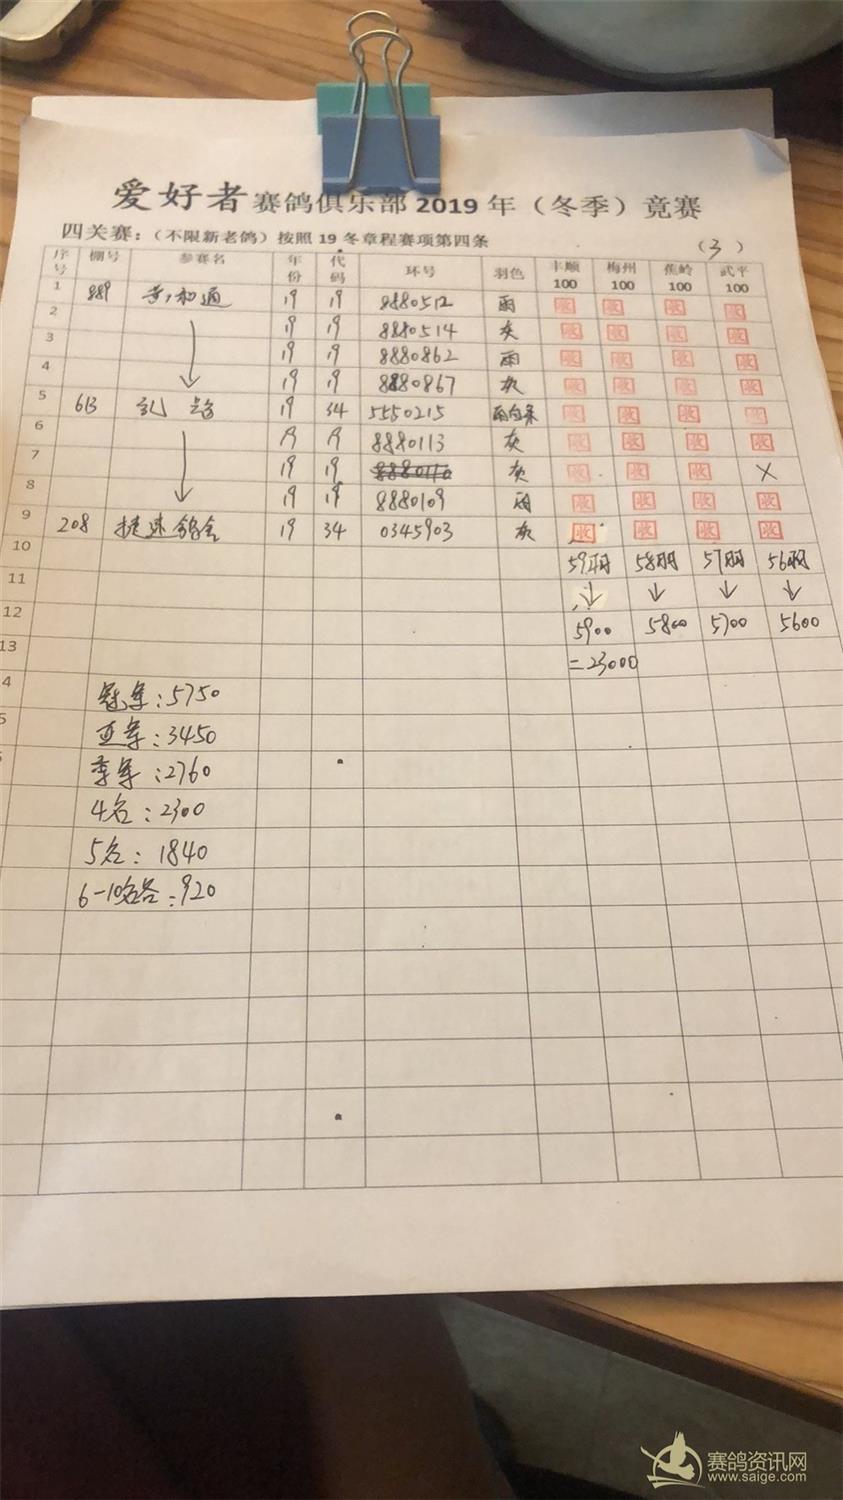 爱好者赛鸽俱乐部 2019 年（冬季）竞赛
四关赛：（不限新老鸽）按照 19 冬章程赛项第四条 （3）
序号 棚号 参赛名 年份 代码 环号 羽色 丰顺 100 梅州 100 蕉岭 100 武平 100
1 889 和通 19 19 8880512 雨 收 收 收 收
2 19 19 8880514 灰 收 收 收 收
3 19 19 8880862 雨 收 收 收 收
4 19 19 8880867 灰 收 收 收 收
5 613 19 34 5550215 雨白条 收 收 收 收
6 8880113 灰 收 收 收 收
7 19 19 灰 收 收 收 X
8 19 19 8880109 雨 收 收 收 收
9 208 捷速鸽舍 19 34 0345903 灰 收 收 收 收
10 59羽 58羽 57羽 56羽
11 ↓ ↓ ↓ ↓
12 5900 5800 5700 5600
13 =23000
4 冠军：5750
5 亚军：3450
季军：2760
4名：2300
5名：1840
6-10名各：920
赛鸽资讯网
www.saige.com